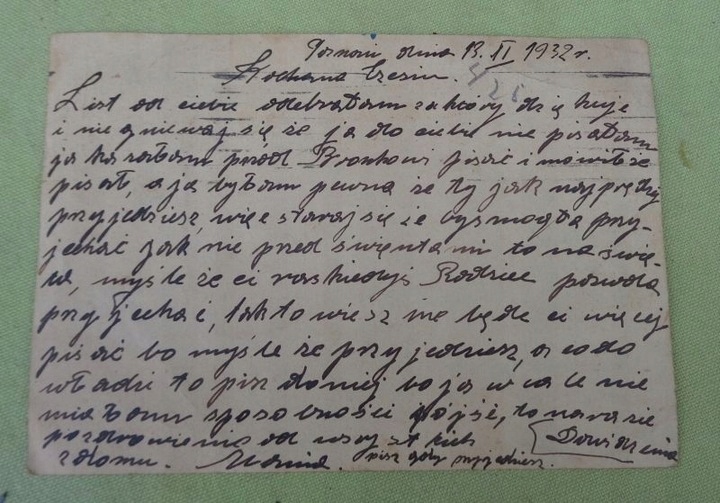 Poznań dnia 13. II 1932 r.
Kochana Czesiu.
List od ciebie odebrałam za który dziękuje
i nie gniewaj się że ja do ciebie nie pisałam
ja kazałam pisać i mówił że
pisał, a ja byłam pewna że ty jak najprędzej
przyjedziesz, więc staraj się że byś mogła przy-
jechać jak nie przed święntami to na świę-
ta, myśle że ci Rodzice pozwolą
przyjechać, tak to wiesz nie będe ci więcej
pisać bo myśle że przyjedziesz, a co do
to pisz do niej bo ja wcale nie
miałam sposobności pójść, to na razie
pozdrowienia od wszystkich Dowidzenia
z domu. pisz gdy przyjedziesz.